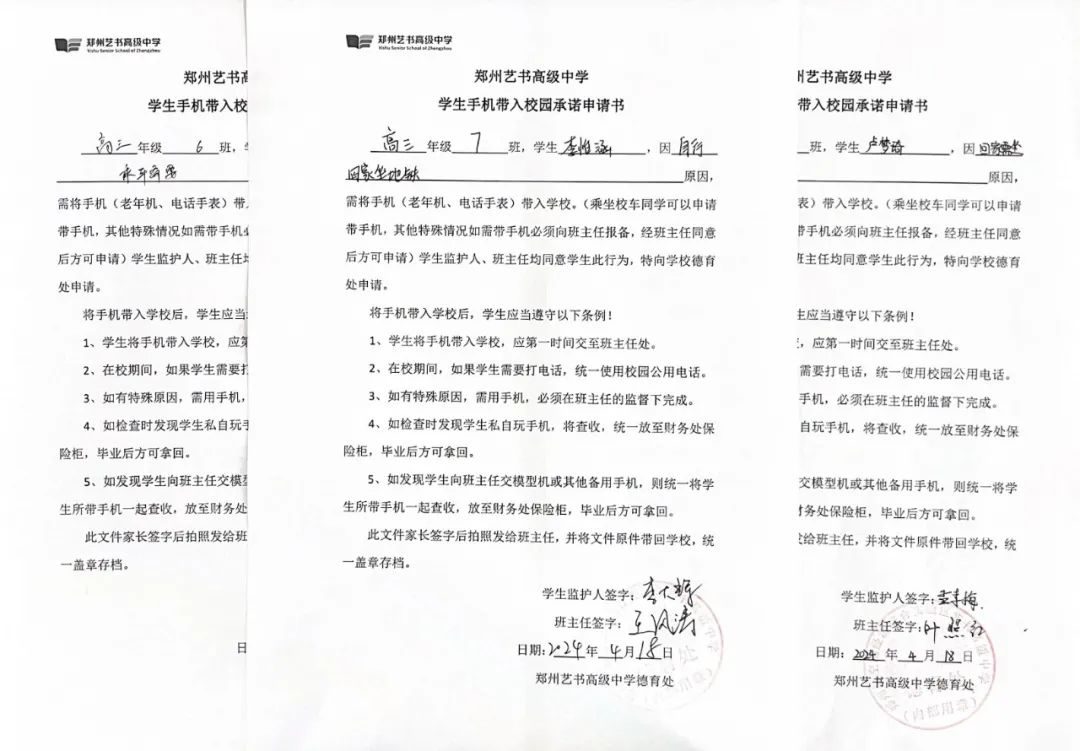 郑州艺书高级中学
Yishu Senior School of Zhengzhou
郑州艺书高
学生手机带入校
高三年级 6 班,
需将手机(老年机、电话手表)带
带手机,其他特殊情况如需带手机必
后方可申请)学生监护人、班主任均
处申请。
将手机带入学校后,学生应当
1、学生将手机带入学校,应第
2、在校期间,如果学生需要打
3、如有特殊原因,需用手机,
4、如检查时发现学生私自玩手
险柜,毕业后方可拿回。
5、如发现学生向班主任交模型
生所带手机一起查收,放至财务处
此文件家长签字后拍照发给班
一盖章存档。
郑州艺书高级中学
Yishu Senior School of Zhengzhou
郑州艺书高级中学
学生手机带入校园承诺申请书
高三年级 7 班,学生李,因自行
回家坐地铁原因,
需将手机(老年机、电话手表)带入学校。(乘坐校车同学可以申请
带手机,其他特殊情况如需带手机必须向班主任报备,经班主任同意
后方可申请)学生监护人、班主任均同意学生此行为,特向学校德育
处申请。
将手机带入学校后,学生应当遵守以下条例!
1、学生将手机带入学校,应第一时间交至班主任处。
2、在校期间,如果学生需要打电话,统一使用校园公用电话。
3、如有特殊原因,需用手机,必须在班主任的监督下完成。
4、如检查时发现学生私自玩手机,将查收,统一放至财务处保
险柜,毕业后方可拿回。
5、如发现学生向班主任交模型机或其他备用手机,则统一将学
生所带手机一起查收,放至财务处保险柜,毕业后方可拿回。
此文件家长签字后拍照发给班主任,并将文件原件带回学校,统
一盖章存档。
学生监护人签字:李大
班主任签字:王风涛
日期:2024年4月18日
郑州艺书高级中学德育处
艺书高级中学
带入校园承诺申请书
班,学生卢梦琦,因回家需坐
原因,
表)带入学校。(乘坐校车同学可以申请
带手机必须向班主任报备,经班主任同意
班主任均同意学生此行为,特向学校德育
生应当遵守以下条例!
,应第一时间交至班主任处。
需要打电话,统一使用校园公用电话。
手机,必须在班主任的监督下完成。
自玩手机,将查收,统一放至财务处保
交模型机或其他备用手机,则统一将学
财务处保险柜,毕业后方可拿回。
发给班主任,并将文件原件带回学校,统
学生监护人签字:
班主任签字:叶照红
日期:2024年4月18日
郑州艺书高级中学德育处
(内部用章)